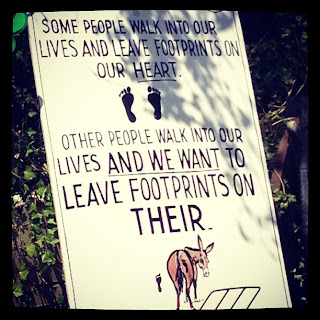 SOME PEOPLE WALK INTO OUR
LIVES AND LEAVE FOOTPRINTS ON
OUR HEART.
OTHER PEOPLE WALK INTO OUR
LIVES AND WE WANT TO
LEAVE FOOTPRINTS ON
THEIR.